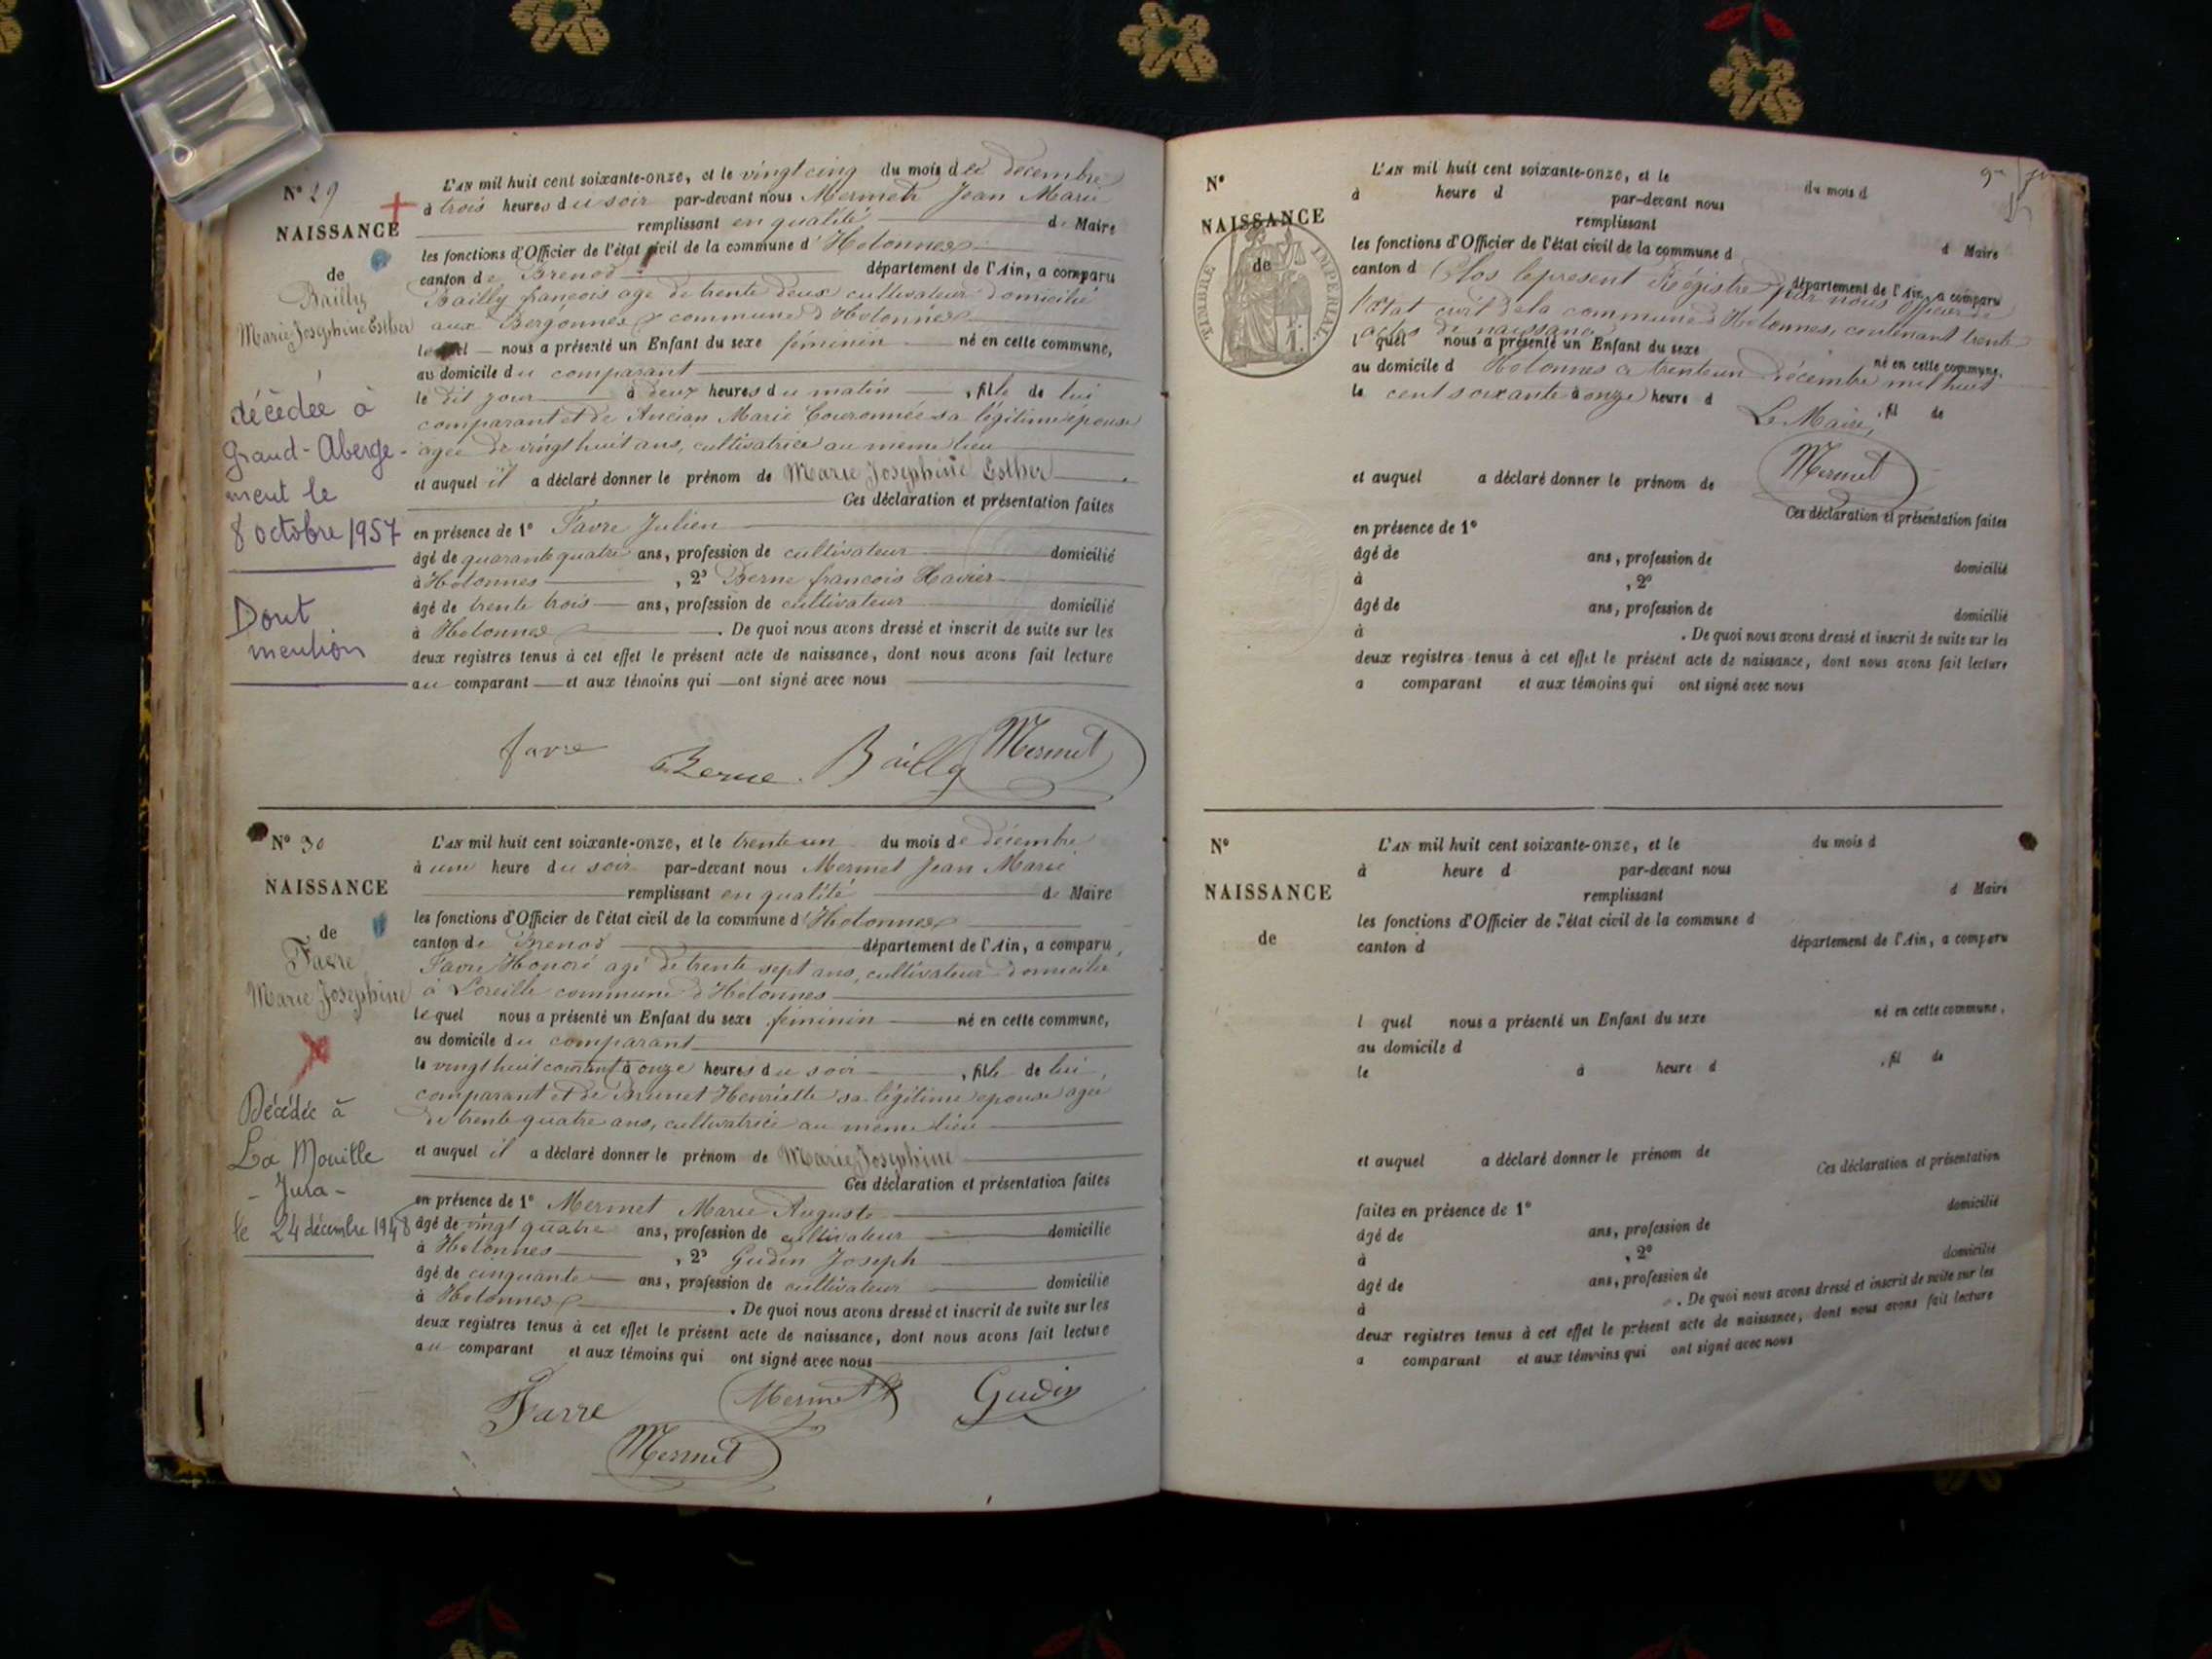 N° 29
NAISSANCE
de
Bailly
Marie Joséphine Esther
décédée à
Grand-Aberge-
ment le
8 octobre 1957
Dont
mention
L'AN mil huit cent soixante-onze, et le vingt cinq du mois de décembre
à trois heures du soir par-devant nous Mermet Jean Marie
remplissant en qualité de Maire
les fonctions d'Officier de l'état civil de la commune d'Hotonnes
canton de Brenod département de l'Ain, a comparu
Bailly françois agé de trente deux cultivateur domicilié
aux Bergonnes commune d'Hotonnes
lequel nous a présenté un Enfant du sexe féminin né en cette commune,
au domicile du comparant
le dit jour à deux heures du matin, fille de lui
comparant et de Ancian Marie Couronnée sa légitime épouse
agée de vingt huit ans, cultivatrice au même lieu
et auquel il a déclaré donner le prénom de Marie Joséphine Esther
Ces déclaration et présentation faites
en présence de 1° Favre Julien
âgé de quarante quatre ans, profession de cultivateur domicilié
à Hotonnes, 2° Berne françois Xavier
âgé de trente trois ans, profession de cultivateur domicilié
à Hotonnes. De quoi nous avons dressé et inscrit de suite sur les
deux registres tenus à cet effet le présent acte de naissance, dont nous avons fait lecture
au comparant et aux témoins qui ont signé avec nous
favre Berne Bailly Mermet
N° 30
NAISSANCE
de
Favre
Marie Joséphine
Décédée à
La Mouille
- Jura -
le 24 décembre 1948
L'AN mil huit cent soixante-onze, et le trente un du mois de décembre
à une heure du soir par-devant nous Mermet Jean Marie
remplissant en qualité de Maire
les fonctions d'Officier de l'état civil de la commune d'Hotonnes
canton de Brenod département de l'Ain, a comparu
Favre Honoré agé de trente sept ans, cultivateur domicilié
à commune d'Hotonnes
lequel nous a présenté un Enfant du sexe féminin né en cette commune,
au domicile du comparant
le vingt huit courant à onze heures du soir, fille de lui,
comparant et de Brunet Henriette sa légitime épouse agée
de trente quatre ans, cultivatrice au même lieu
et auquel il a déclaré donner le prénom de Marie Joséphine
Ces déclaration et présentation faites
en présence de 1° Mermet Marie Auguste
âgé de vingt quatre ans, profession de cultivateur domicilié
à Hotonnes, 2° Gudin Joseph
âgé de cinquante ans, profession de cultivateur domicilié
à Hotonnes. De quoi nous avons dressé et inscrit de suite sur les
deux registres tenus à cet effet le présent acte de naissance, dont nous avons fait lecture
au comparant et aux témoins qui ont signé avec nous
Favre Mermet Gudin
Mermet
N°
NAISSANCE
de
TIMBRE IMPERIAL
L'AN mil huit cent soixante-onze, et le du mois d
à heure d par-devant nous
remplissant d Maire
les fonctions d'Officier de l'état civil de la commune d
canton d département de l'Ain, a comparu
Clos le présent Régistre par nous officier de
l'état civil de la commune d'Hotonnes, contenant trente
actes de naissance
l quel nous a présenté un Enfant du sexe né en cette commune,
au domicile d
Hotonnes ce trente un décembre mil huit
le à heure d, fil de
cent soixante onze
Le Maire,
Mermet
et auquel a déclaré donner le prénom de
Ces déclaration et présentation faites
en présence de 1°
âgé de ans, profession de domicilié
à , 2°
âgé de ans, profession de domicilié
à . De quoi nous avons dressé et inscrit de suite sur les
deux registres tenus à cet effet le présent acte de naissance, dont nous avons fait lecture
a comparant et aux témoins qui ont signé avec nous
N°
NAISSANCE
de
L'AN mil huit cent soixante-onze, et le du mois d
à heure d par-devant nous
remplissant d Maire
les fonctions d'Officier de l'état civil de la commune d
canton d département de l'Ain, a comparu
l quel nous a présenté un Enfant du sexe né en cette commune,
au domicile d
le à heure d , fil de
et auquel a déclaré donner le prénom de
Ces déclaration et présentation
faites en présence de 1°
âgé de ans, profession de domicilié
à , 2°
âgé de ans, profession de domicilié
à . De quoi nous avons dressé et inscrit de suite sur les
deux registres tenus à cet effet le présent acte de naissance, dont nous avons fait lecture
a comparant et aux témoins qui ont signé avec nous